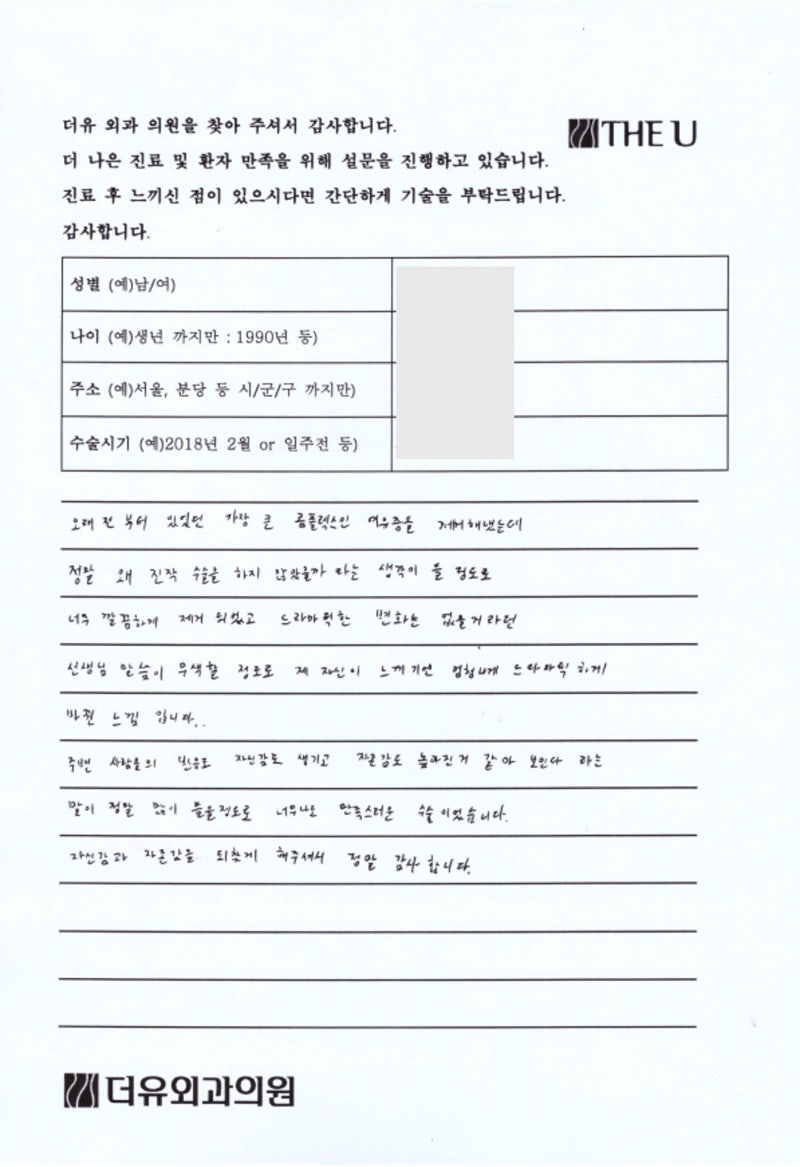 더유 외과 의원을 찾아 주셔서 감사합니다.
THE U
더 나은 진료 및 환자 만족을 위해 설문을 진행하고 있습니다.
진료 후 느끼신 점이 있으시다면 간단하게 기술을 부탁드립니다.
감사합니다.
성별 (예)남/여)
나이 (예)생년 까지만 : 1990년 등)
주소 (예)서울, 분당 등 시/군/구 까지만)
수술시기 (예)2018년 2월 or 일주전 등)
오래 전 부터 있었던 가장 큰 콤플렉스인 여유증을 제거해냈는데
정말 왜 진작 수술을 하지 않았을까 라는 생각이 들 정도로
너무 깔끔하게 제거 되었고 드라마틱한 변화는 없을거라던
선생님 말씀이 무색할 정도로 제 자신이 느끼기엔 엄청나게 드라마틱 하게
바뀐 느낌 입니다..
주변 사람들의 반응도 자신감도 생기고 자존감도 높아진거 같아 보인다 라는
말이 정말 많이 들을정도로 너무나도 만족스러운 수술 이었습니다.
자신감과 자존감을 되찾게 해주셔서 정말 감사 합니다.
더유외과의원